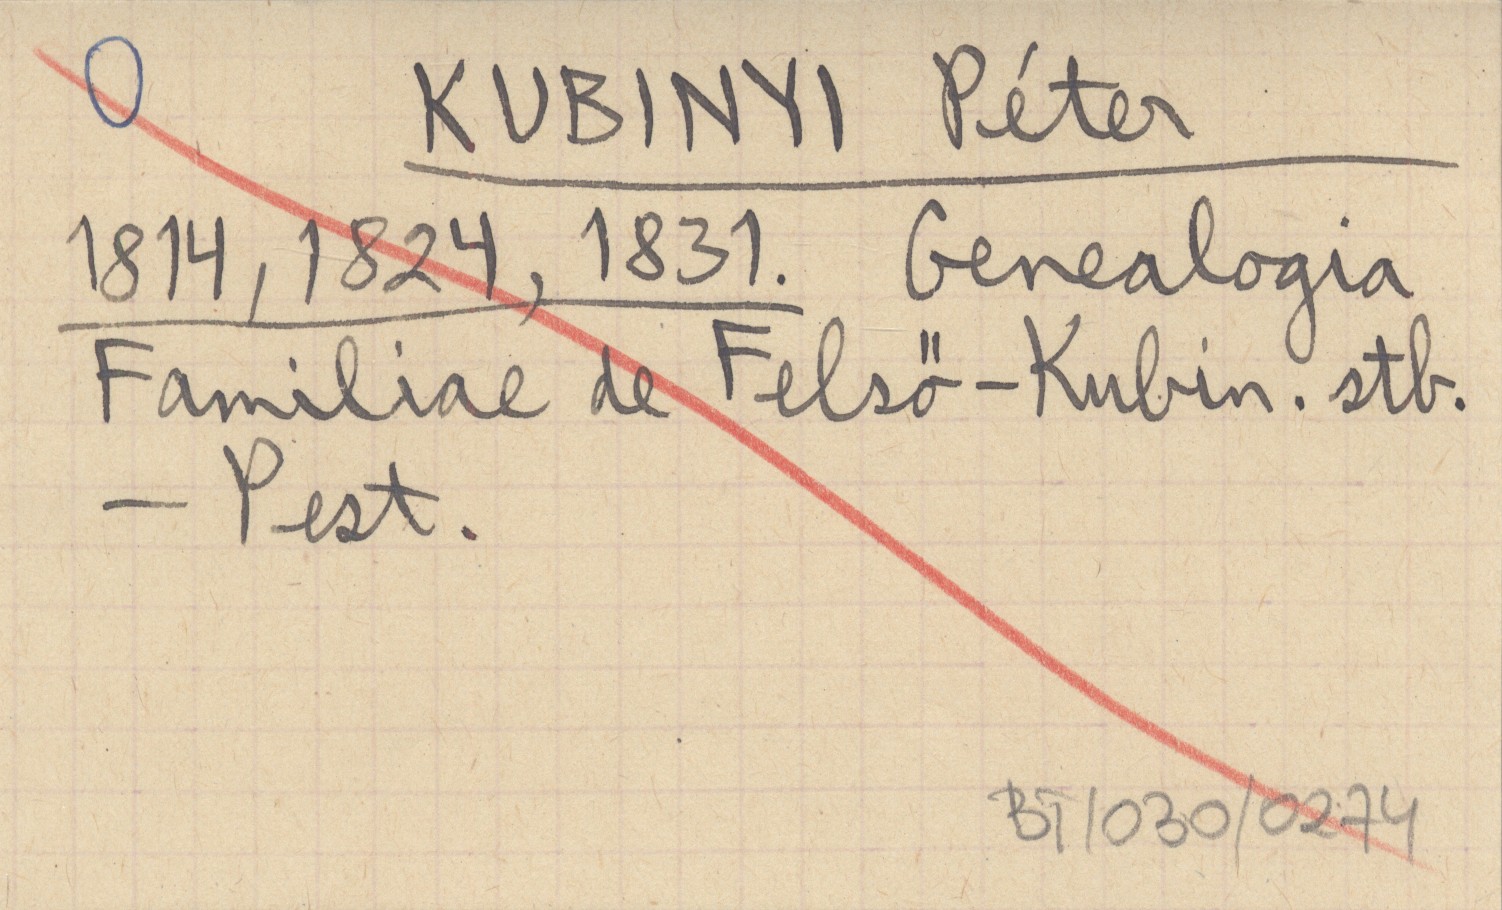 KUBINYI Péter
1814, 1824, 1831. Genealogia
Familiae de Felső-Kubin. stb.
- Pest.
BT/030/0274